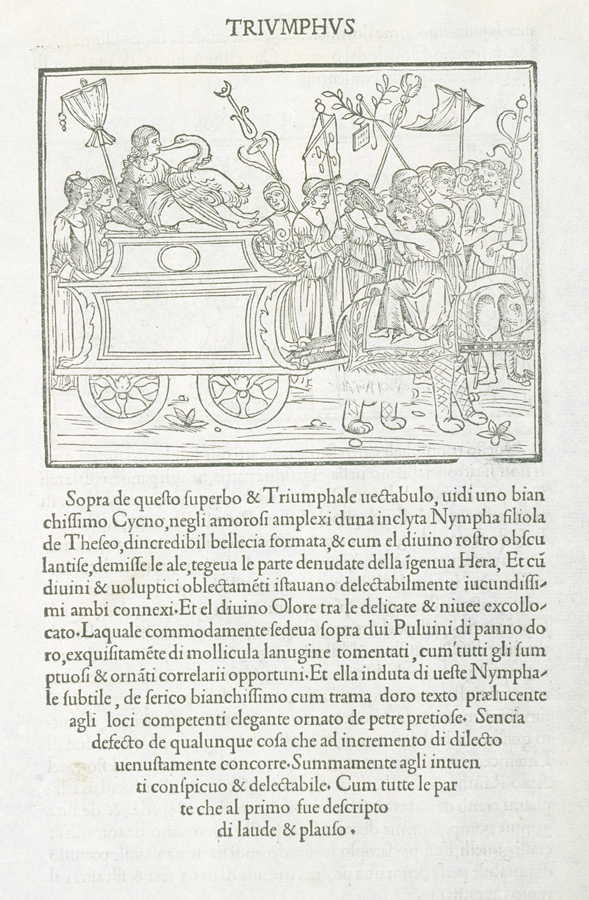 TRIVMPHVS
Sopra de questo superbo & Triumphale uectabulo, uidi uno bian
chissimo Cycno, negli amorosi amplexi duna inclyta Nympha filiola
de Theseo, dincredibil bellecia formata, & cum el diuino rostro obscu
lantise, demisse le ale, tegeua le parte denudate della igenua Hera, Et cū
diuini & uoluptici oblectamēti istauano delectabilmente iucundissi-
mi ambi connexi. Et el diuino Olore tra le delicate & niuee coxe collo-
cato. Laquale commodamente sedeua sopra dui Puluini di panno do
ro, exquisitamēte di mollicula lanugine tomentati, cum tutti gli sum
ptuosi & ornāti correlarii opportuni. Et ella induta di ueste Nympha-
le subtile, de serico bianchissimo cum trama doro texto prælucente
agli loci competenti elegante ornato de petre pretiose. Sencia
defecto de qualunque cosa che ad incremento di dilecto
uenustamente concorre. Summamente agli intuen
ti conspicuo & delectabile. Cum tutte le par
te che al primo fue descripto
di laude & plauso.